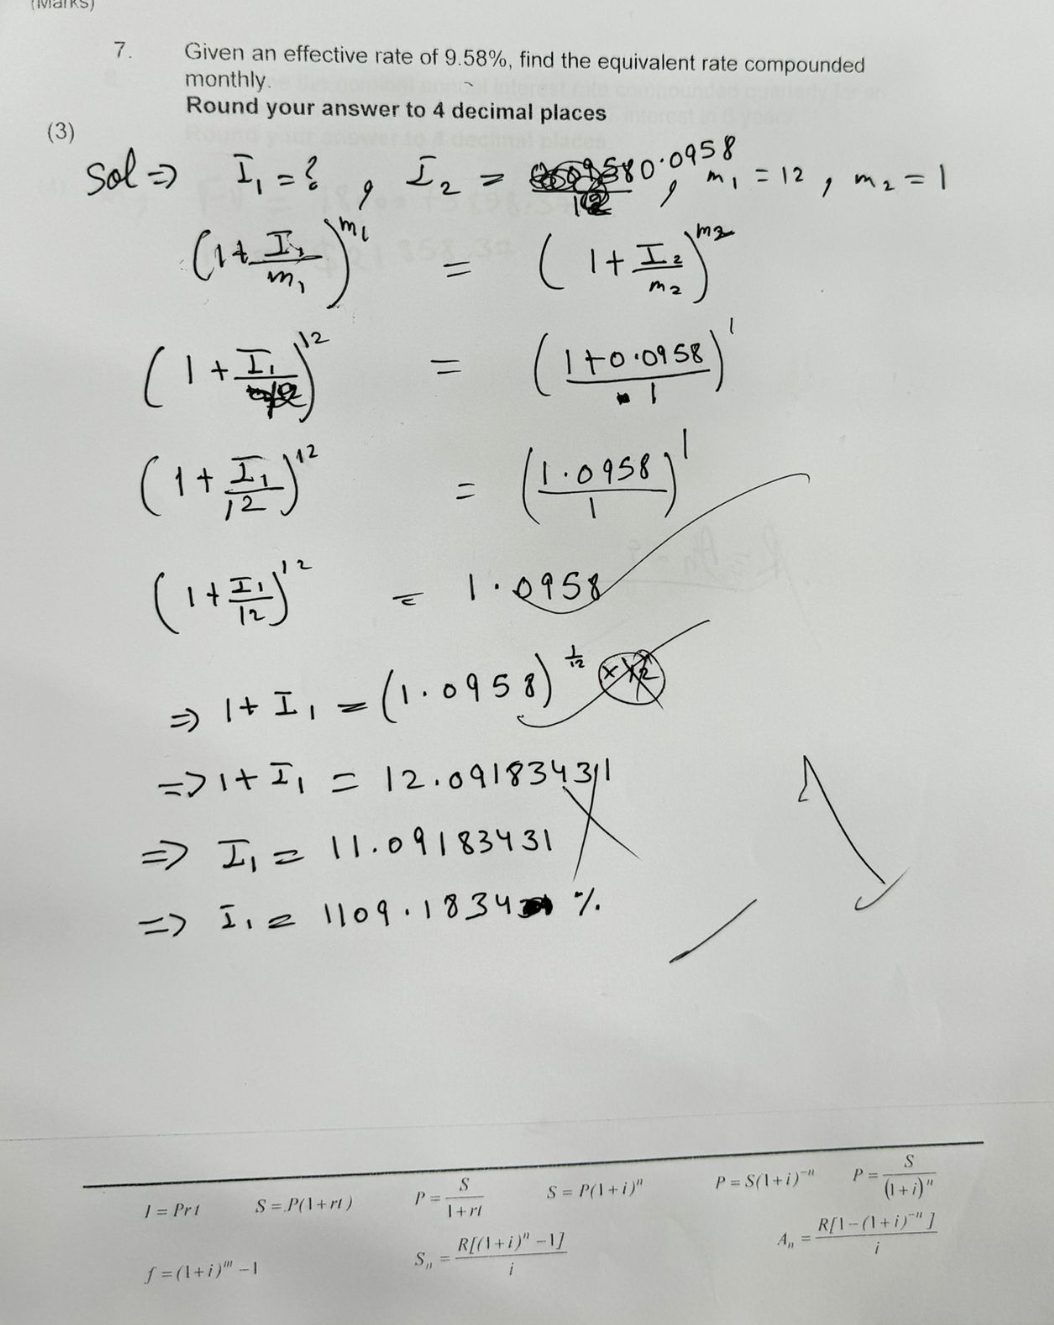 (Marks)
7. Given an effective rate of 9.58%, find the equivalent rate compounded
monthly.
Round your answer to 4 decimal places
(3)
Sol => I₁ = ? , I₂ = 0.0958 , m₁ = 12 , m₂ = 1
(1 + I₁/m₁)^m₁ = (1 + I₂/m₂)^m₂
(1 + I₁/12)^12 = ((1+0.0958)/1)^1
(1 + I₁/12)^12 = (1.0958/1)^1
(1 + I₁/12)^12 = 1.0958
=> 1 + I₁ = (1.0958)^1/12 x12
=> 1 + I₁ = 12.09183431
=> I₁ = 11.09183431
=> I₁ = 1109.1834 %
I = Prt S = P(1+rt) P = S/(1+rt) S = P(1+i)^n P = S(1+i)^-n P = S/(1+i)^n
f = (1+i)^m − 1 Sₙ = R[(1+i)^n − 1]/i Aₙ = R[1−(1+i)^-n]/i